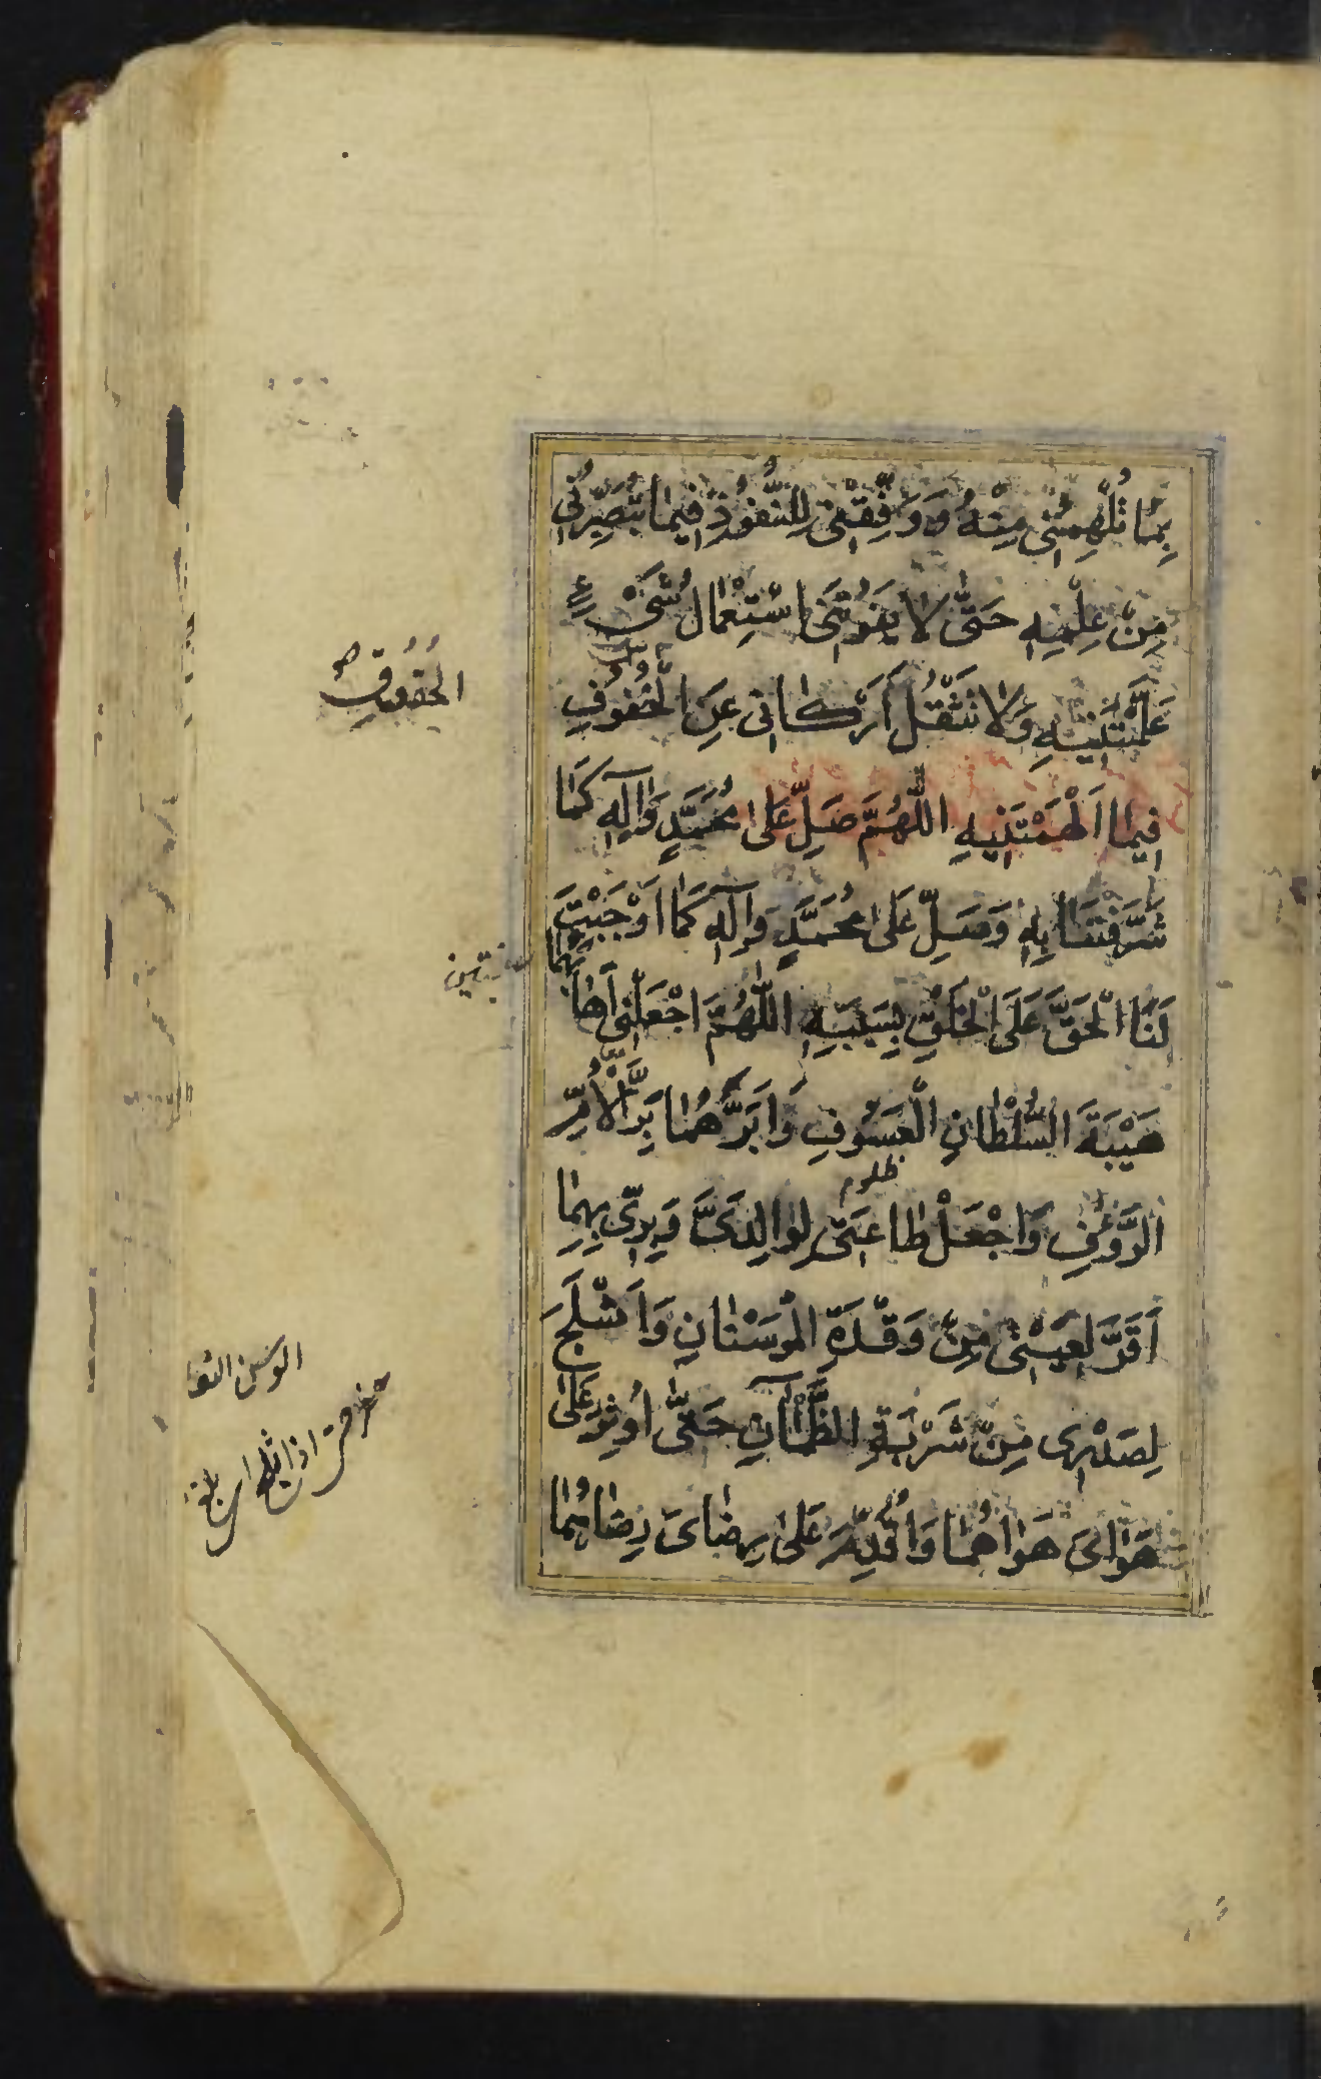 بِمَا تُلْهِمُنِي مِنْهُ وَ وَفِّقْنِي لِلنُّفُوذِ فِيمَا تُبَصِّرُنِي
مِنْ عِلْمِهِ حَتَّى لَا يَفُوتَنِي اسْتِعْمَالُ شَيْءٍ
عَلَّمْتَنِيهِ وَلَا تَثْقُلَ أَرْكَانِي عَنِ الْحُفُوفِ
الْحُقُوقِ
فِيمَا أَلْهَمْتَنِيهِ اللَّهُمَّ صَلِّ عَلَى مُحَمَّدٍ وَآلِهِ كَمَا
شَرَّفْتَنَا بِهِ وَصَلِّ عَلَى مُحَمَّدٍ وَآلِهِ كَمَا أَوْجَبْتَ
لَنَا الْحَقَّ عَلَى الْخَلْقِ بِسَبَبِهِ اللَّهُمَّ اجْعَلْنِي أَهَابُهُمَا
هَيْبَةَ السُّلْطَانِ الْعَسُوفِ وَأَبَرُّهُمَا بِرَّ الْأُمِّ
ظلوم
الرَّؤُفِ وَاجْعَلْ طَاعَتِي لِوَالِدَيَّ وَبِرِّي بِهِمَا
أَقَرَّ لِعَيْنِي مِنْ رَقْدَةِ الْوَسْنَانِ وَأَثْلَجَ
الوسن
لِصَدْرِي مِنْ شَرْبَةِ الظَّمْآنِ حَتَّى أُوثِرَ عَلَى
هَوَايَ هَوَاهُمَا وَأُقَدِّمَ عَلَى رِضَايَ رِضَاهُمَا